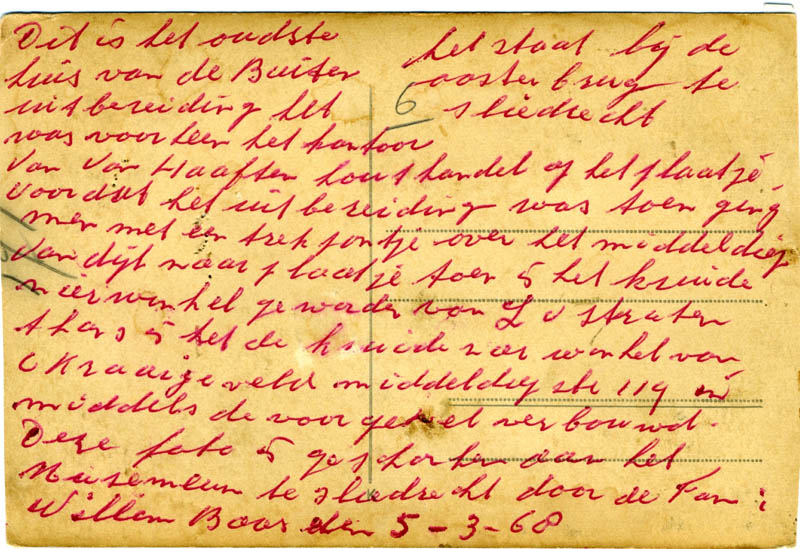 Dit is het oudste
huis van de Buiten
uitbereiding het
was voorheen het kantoor
van van Haaften houthandel of het plaatje
voordat het uitbereiding was toen ging
men met een trekpontje over het middeldiep
van dijk naar plaatje toen is het kruide
nierwinkel geworden van L v straten
thans is het de kruidenier winkel van
C Kraaijeveld middeldiep str 119 in
middels de voorgevel verbouwd.
Deze foto is geschonken aan het
Museneum te sliedrecht door de Fam:
Willem Baas den 5-3-68
het staat bij de
ooster brug te
sliedrecht
6